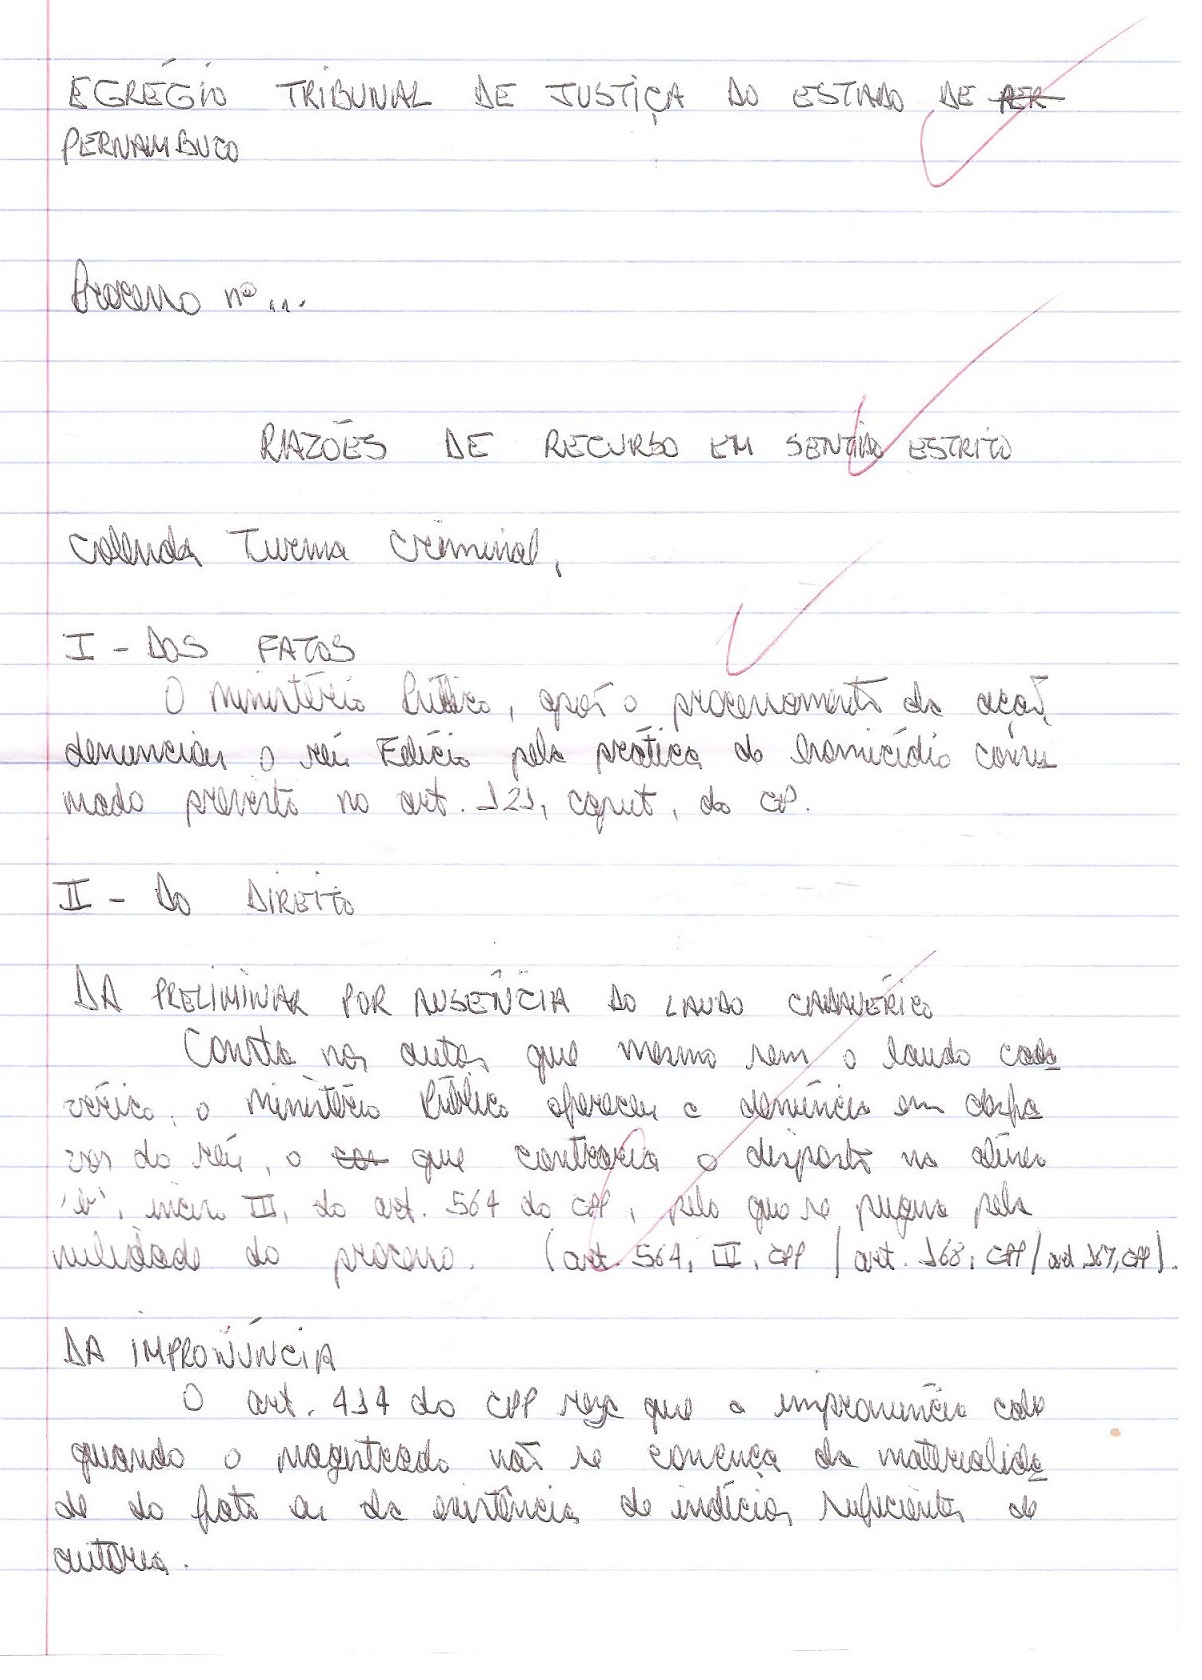 EGRÉGIO TRIBUNAL DE JUSTIÇA DO ESTADO DE PER
PERNAMBUCO
Processo nº ...
RAZÕES DE RECURSO EM SENTIDO ESTRITO
Colenda Turma Criminal,
I - DOS FATOS
O Ministério Público, após o processamento da ação,
denunciou o réu Edício pela prática do homicídio consu
mado previsto no art. 121, caput, do CP.
II - DO DIREITO
DA PRELIMINAR POR AUSÊNCIA DO LAUDO CADAVÉRICO
Consta nos autos que mesmo sem o laudo cada
vérico, o Ministério Público ofereceu a denúncia em desfa
vor do réu, o que contraria o disposto na alínea
'b', inciso III, do art. 564 do CPP, pelo que se pugna pela
nulidade do processo. (art. 564, III, CPP / art. 168, CPP / art. 167, CPP).
DA IMPRONÚNCIA
O art. 414 do CPP reza que a impronúncia cabe
quando o magistrado não se convença da materialida
de do fato ou da existência de indícios suficientes de
autoria.